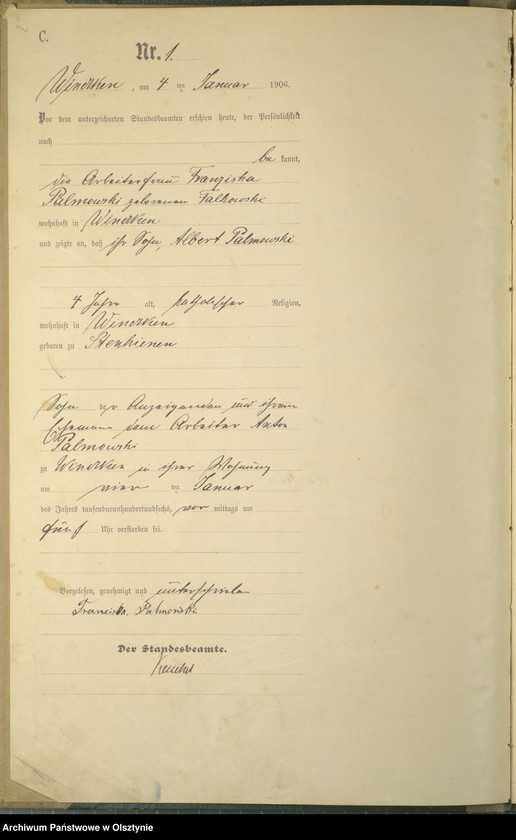 C.
Nr. 1.
Windtken, am 4 ten Januar 1906.
Vor dem unterzeichneten Standesbeamten erschien heute, der Persönlichkeit
nach
be kannt,
die Arbeiterfrau Franziska
Palmowski geborenen Falkowski
wohnhaft in Windtken
und zeigte an, daß ihr Sohn, Albert Palmowski
4 Jahre alt, katholischer Religion,
wohnhaft in Windtken
geboren zu Stenkienen
Sohn der Anzeigenden und ihrem
Ehemann dem Arbeiter Anton
Palmowski
zu Windtken in ihrer Wohnung
am vier ten Januar
des Jahres tausendneunhundertundsechs, vor mittags um
fünf Uhr verstorben sei.
Vorgelesen, genehmigt und unterschrieben
Franciska Palmowski.
Der Standesbeamte.
Archiwum Państwowe w Olsztynie